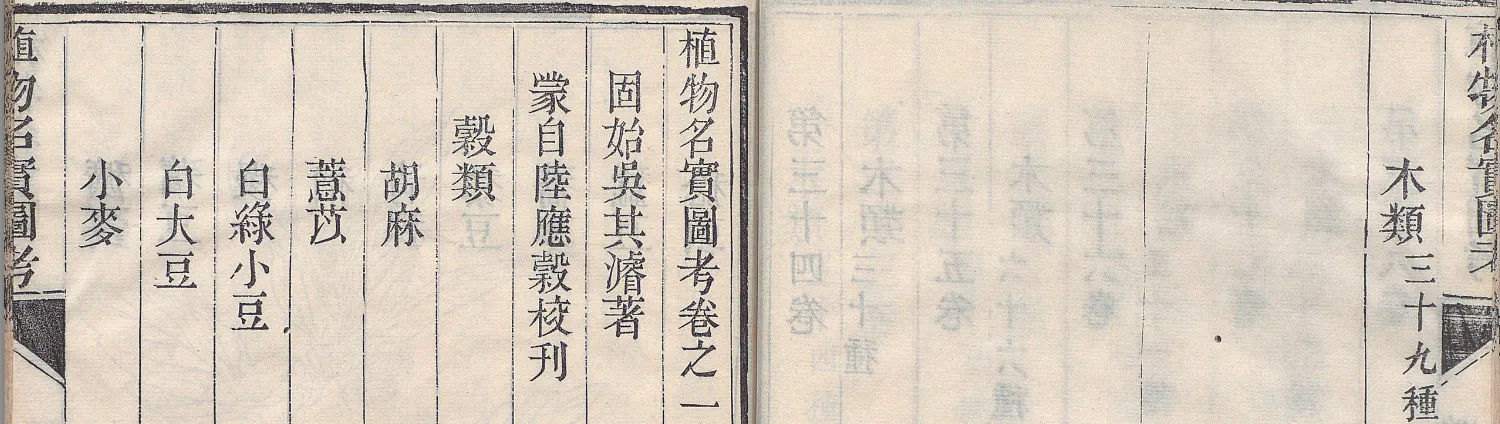 植物名實圖考
木類三十九種
植物名實圖考卷之一
固始吳其濬著
蒙自陸應穀校刊
穀類
胡麻
薏苡
白綠小豆
白大豆
小麥
植物名實圖考